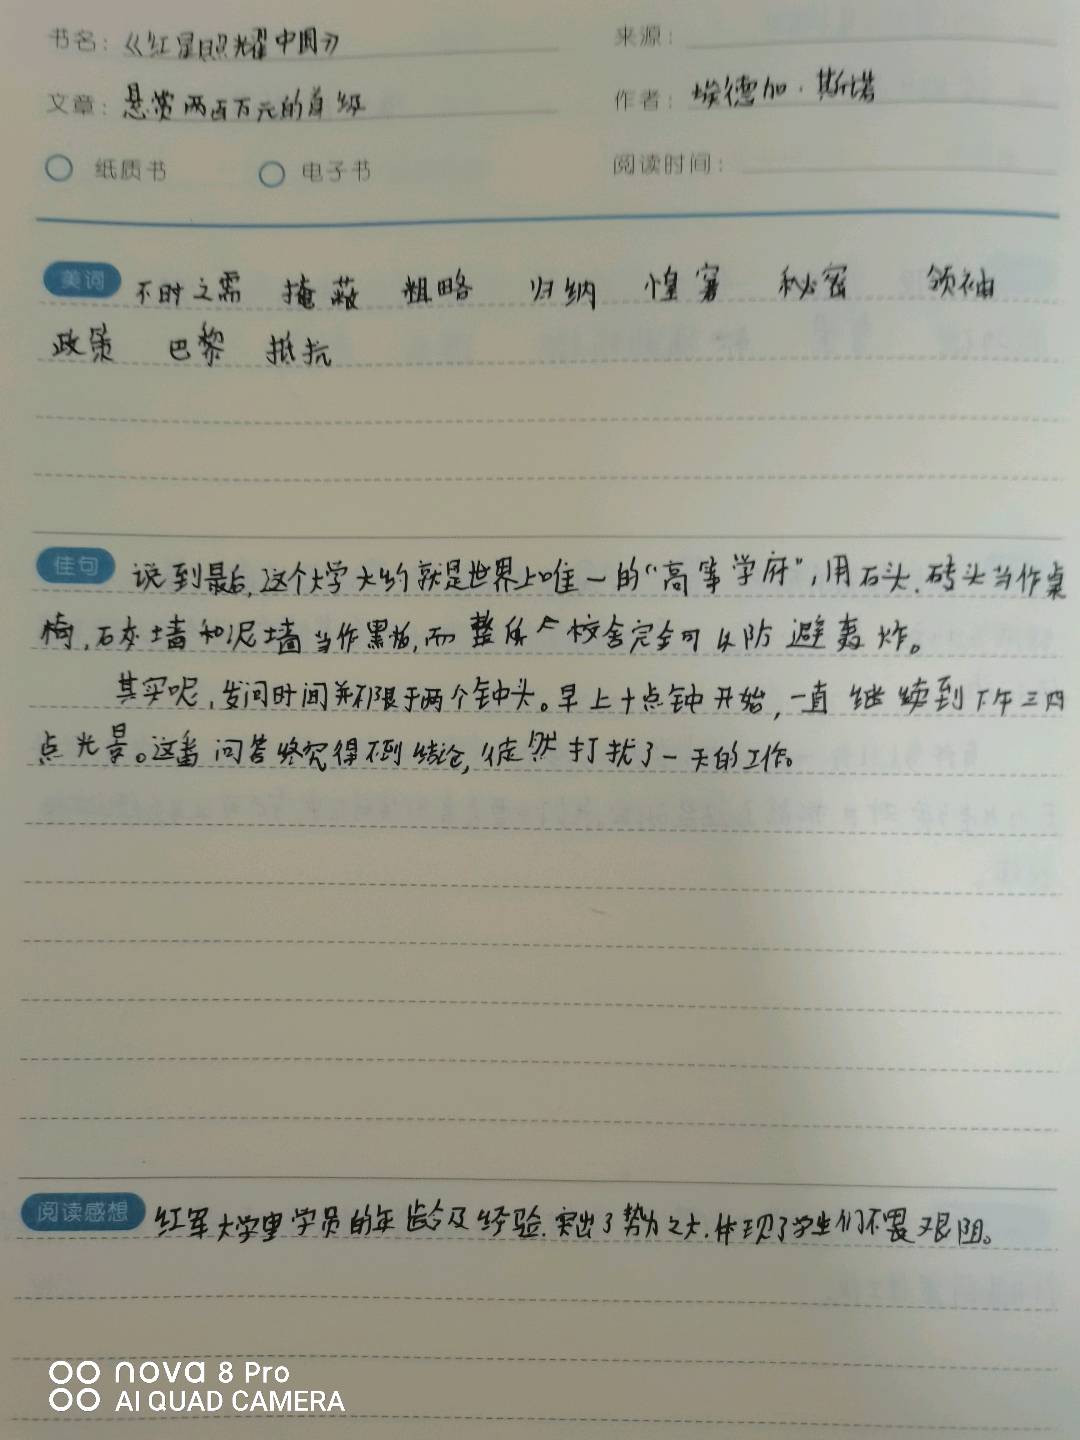 书名：《红星照耀中国》 来源：
文章：悬赏两百万元的首级 作者：埃德加·斯诺
纸质书 电子书 阅读时间：
美词 不时之需 掩蔽 粗略 归纳 惶窘 秘密 领袖
政策 巴黎 抵抗
佳句 说到最后,这个大学大约就是世界上唯一的“高等学府”,用石头、砖头当作桌
椅,石灰墙和泥墙当作黑板,而整所校舍完全可以防避轰炸。
其实呢,发问时间并不限于两个钟头。早上十点钟开始,一直继续到下午三四
点光景。这番问答终究得不到结论,徒然打扰了一天的工作。
阅读感想 红军大学里学员的年龄及经验,突出了势力之大,体现了学生们不畏艰阻。
nova 8 Pro
AI QUAD CAMERA